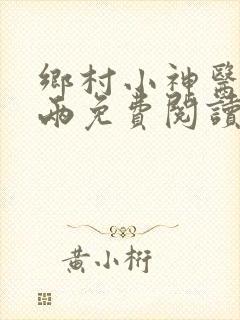 鄉村小神醫
雨免費閱讀
黃小桁